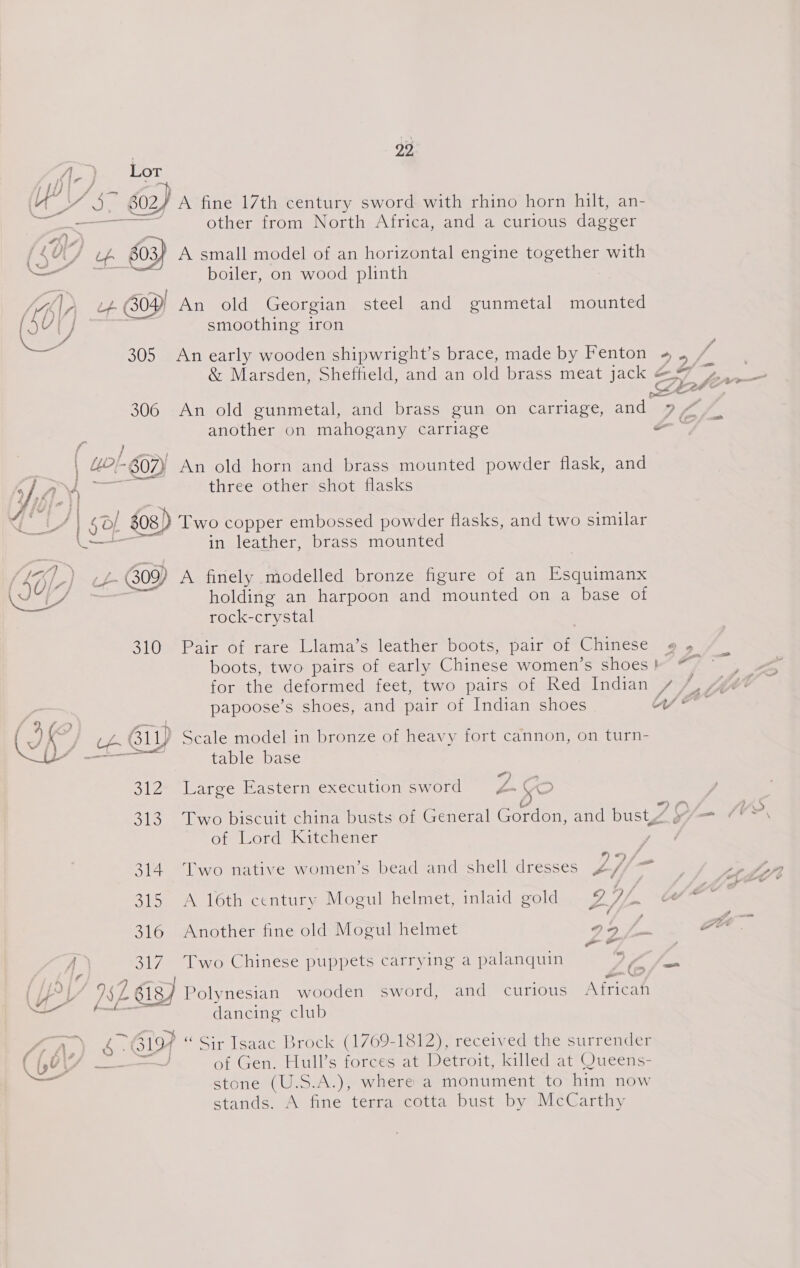 22
Lot
302 A fine 17th century sword with rhino horn hilt, an-
other from North Africa, and a curious dagger
303 A small model of an horizontal engine together with
boiler, on wood plinth
304 An old Georgian steel and gunmetal mounted
smoothing iron
305 An early wooden shipwright's brace, made by Fenton
& Marsden, Sheffield, and an old brass meat jack
306 An old gunmetal, and brass gun on carriage, and
another on mahogany carriage
307 An old horn and brass mounted powder flask, and
three other shot flasks
308 Two copper embossed powder flasks, and two similar
in leather, brass mounted
309 A finely modelled bronze figure of an Esquimanx
holding an harpoon and mounted on a base of
rock-crystal
310 Pair of rare Llama's leather boots, pair of Chinese
boots, two pairs of early Chinese women's shoes
for the deformed feet, two pairs of Red Indian
papoose's shoes, and pair of Indian shoes
311 Scale model in bronze of heavy fort cannon, on turn-
table base
312 Large Eastern execution sword
313 Two biscuit china busts of General Gordon, and bust
of Lord Kitchener
314 Two native women's bead and shell dresses
315 A 16th century Mogul helmet, inlaid gold
316 Another fine old Mogul helmet
317 Two Chinese puppets carrying a palanquin
318 Polynesian wooden sword, and curious African
dancing club
319 " Sir Isaac Brock (1769-1812), received the surrender
of Gen. Hull's forces at Detroit, killed at Queens-
stone (U.S.A.), where a monument to him now
stands. A fine terra cotta bust by McCarthy